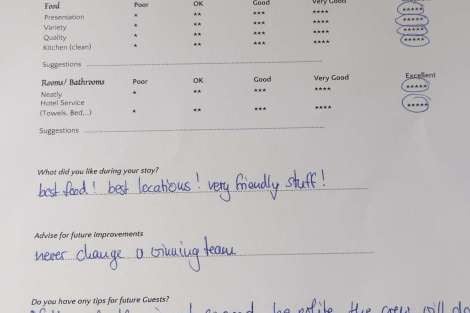 Food Poor OK Good Very Good
Presentation * ** *** **** *****
Variety * ** *** **** *****
Quality * ** *** **** *****
Kitchen (clean) * ** *** **** *****
Suggestions
Rooms/ Bathrooms Poor OK Good Very Good Excellent
Neatly * ** *** **** *****
Hotel Service
(Towels, Bed...) * ** *** **** *****
Suggestions
What did you like during your stay?
best food! best locations! very friendly stuff!
Advise for future improvements
never change a winning team
Do you have any tips for future Guests?
be polite the crew will do